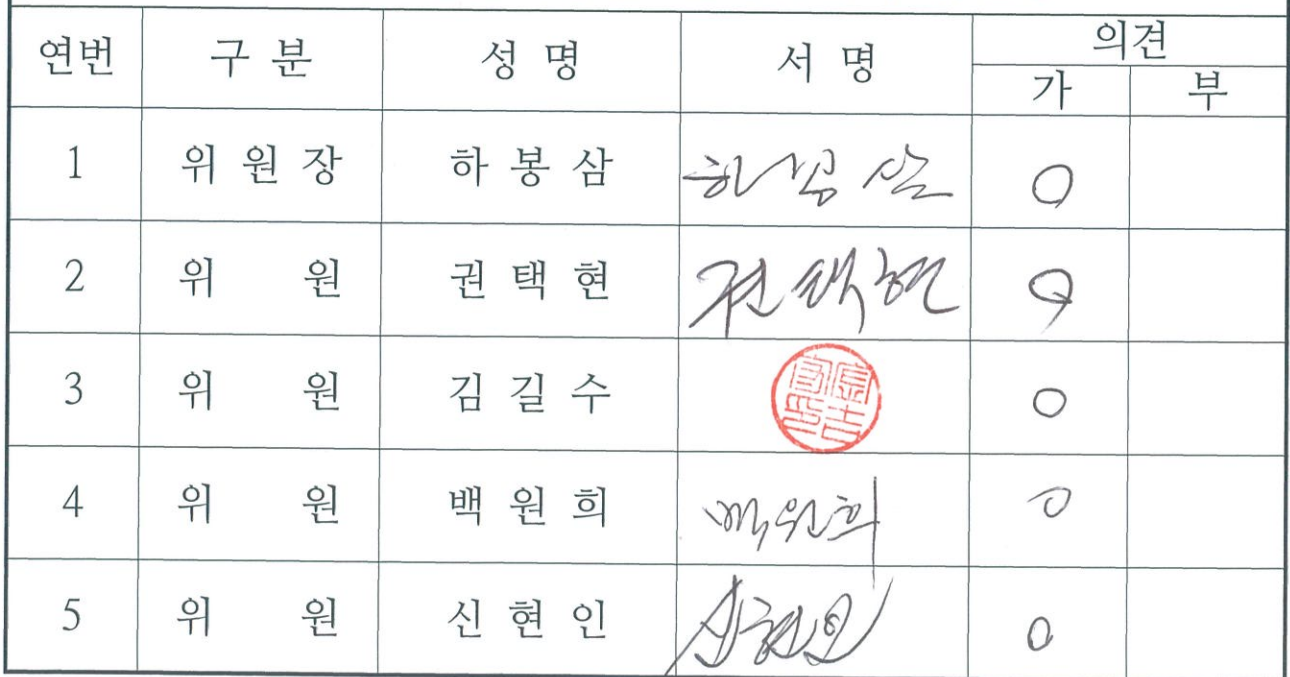 연번 구 분 성 명 서 명 의견
가 부
1 위 원 장 하 봉 삼 하봉삼 ○
2 위 원 권 택 현 권택현 ○
3 위 원 김 길 수 ○
4 위 원 백 원 희 백원희 ○
5 위 원 신 현 인 신현인 ○